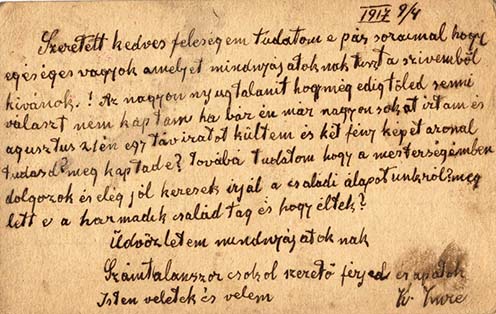 1917 9/4
Szeretett kedves feleségem tudatom e pár soraimal hogy
egéséges vagyok amelyet mindnyájatoknak tiszta szivemből
kivánok.! Az nagyon nyugtalanit hogy még edig tőled semi
választ nem kaptam ha bar én már nagyon sokat irtam és
agusztus 21én egy táviratot kültem és két fény képet aronal
tudasd? meg kaptad e? Továba tudatom hogy a mesterségémben
dolgozok és elég jól keresek irjál a családi álapotunkról? meg
lett e a harmadik család tag és hogy éltek?
Üdvözletem mindnyájatoknak
Számtalanszor csokol szerető férjed és apátok
Isten veletek és velem K. Imre